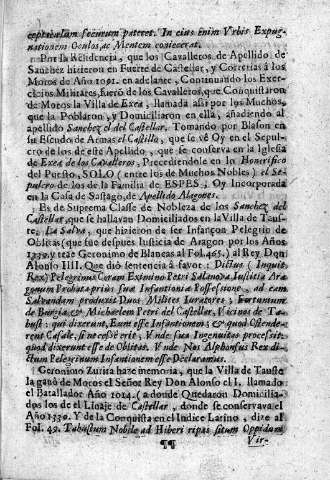 ceptabulum securum pateret. In eius enim Urbis Expug-
nationem Oculos, ac Mentem coniecerat.
Por la Residencia, que los Cavalleros de Apellido de
Sanchez hizieron en Fuerte de Castellar, y Correrias à los
Moros de Año 1091. en adelante, Continuando los Exer-
cicios Militares, fueró de los Cavalleros, que Conquistaron
de Moros la Villa de Exea, llamada assi por los Muchos,
que la Poblaron, y Domiciliaron en ella, añadiendo al
apellido Sanchez el del Castellar, Tomando por Blason en
su Escudo de Armas el Castillo, que se vé Oy en el Sepul-
cro de los de este Apellido, que se conserva en la Iglesia
de Exea de los Cavalleros, Precediendole en lo Honorifico
del Puesto, SOLO (entre los de Muchos Nobles) el Se-
pulcro de los de la Familia de ESPES, Oy Incorporada
en la Casa de Sastago, de Apellido Alagones.
Es de Suprema Classe de Nobleza de los Sanchez del
Castellar, que se hallavan Domiciliados en la Villa de Taus-
te, La Salva, que hizieron de ser Infançon Pelegrin de
Oblitas (que fue despues Iusticia de Aragon por los Años
1339. y trae Geronimo de Blancas al Fol. 465.) al Rey Don
Alonso IIII. Que diò sentencia à favor: Dictus (Inquit
Rex) Peregrinus Coram Eximino Petri Salanova, Iustitia Ara-
gonum Probata prius sua Infantionia Possessione, ad eam
Salvandam produxit Duos Milites Iuratores; Fortunium
de & Michaelem Petri del Castellar, Vicinos de Ta-
bust; qui dixerunt, Eum esse Infantionem; & quod Ostende-
rent Casale, si necesse erit; Y unde sua Ingenuitas processit;
quod dixerunt esse de Oblitas. Y unde Nos Alphonsus Rex di-
ctum Peregrinum Infantionem esse Declaramus.
Geronimo Zurita haze memoria, que la Villa de Tauste
la ganò de Moros el Señor Rey Don Alonso el I. llamado
el Batallador Año 1024. (a donde Quedaron Domicilia-
dos los de el Linaje de Castellar, donde se conservava el
Año 1330. Y de la Conquista en el Indice Latino, dize al
Fol. 49. Tabustum Nobile ad Hiberi ripas situm Oppidum
¶¶ Vir-